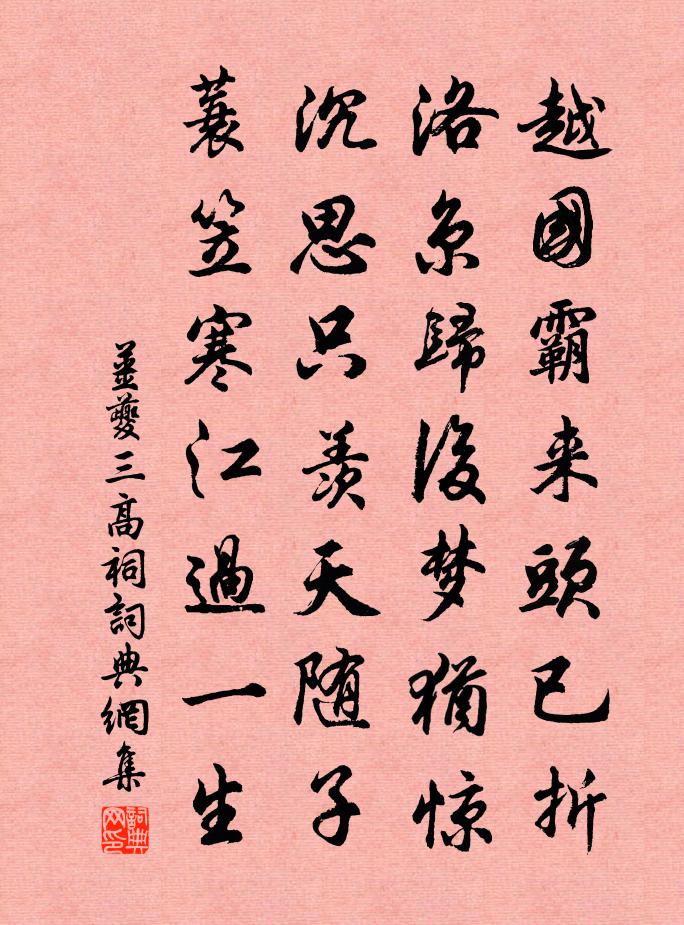 越國霸来頭已折
洛京歸後梦猶惊
沉思只羡天随子
蓑笠寒江過一生
姜夔三高祠詞典網集
詞典网印